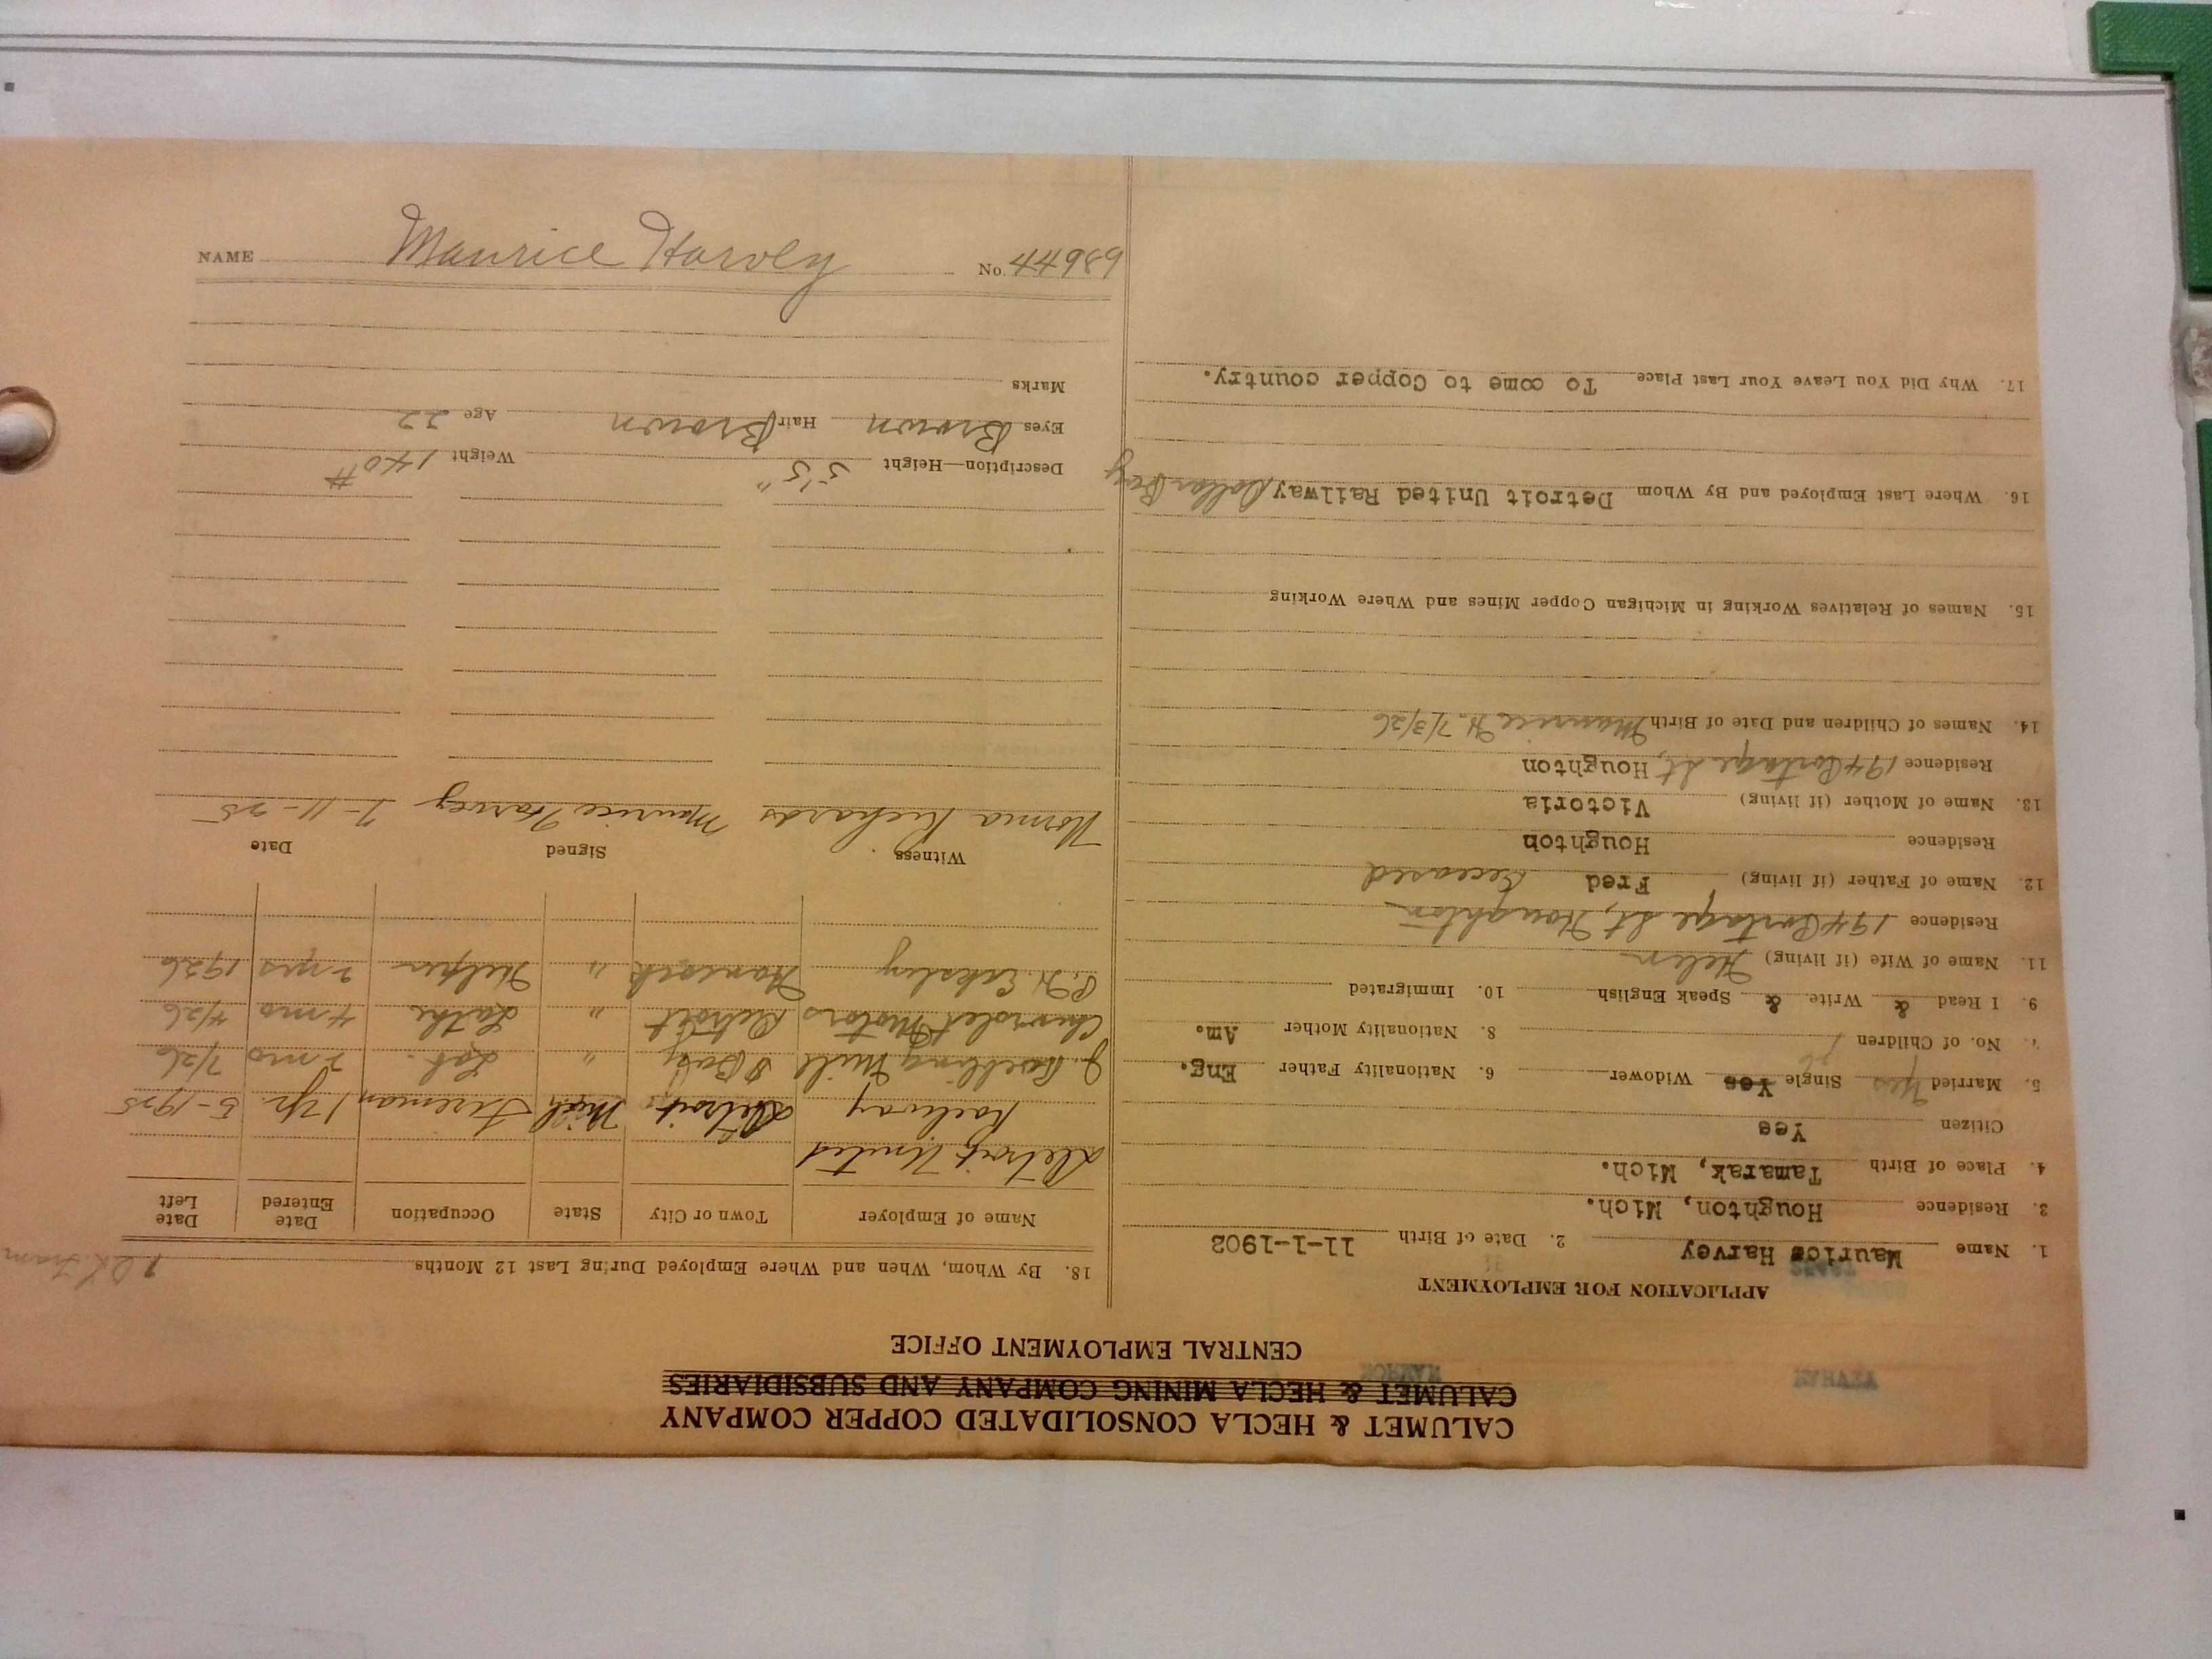 CALUMET & HECLA CONSOLIDATED COPPER COMPANY
CALUMET & HECLA MINING COMPANY AND SUBSIDIARIES
CENTRAL EMPLOYMENT OFFICE
HARVEY
APPLICATION FOR EMPLOYMENT
1. Name Maurice Harvey 2. Date of Birth 11-1-1902
3. Residence Houghton, Mich.
4. Place of Birth Tamarak, Mich.
Citizen Yes
5. Married Yes Single Yes Widower 6. Nationality Father Eng.
7. No. of Children 1 8. Nationality Mother Am.
9. I Read & Write & Speak English 10. Immigrated
11. Name of Wife (if living) Helen
Residence 194 Portage St, Houghton
12. Name of Father (if living) Fred Deceased
Residence Houghton
13. Name of Mother (if living) Victoria
Residence 194 Portage St, Houghton
14. Names of Children and Date of Birth Maurice H. 7/3/26
15. Names of Relatives Working in Michigan Copper Mines and Where Working
16. Where Last Employed and By Whom Detroit United Railway Dollar Bay
17. Why Did You Leave Your Last Place To come to Copper country.
18. By Whom, When and Where Employed During Last 12 Months
Name of Employer Town or City State Occupation Date Entered Date Left
Detroit United
Railway Detroit Mich Fireman 1 yr. 5-1925
J. Roebling Mill D Bay " Lab. 2 mo 7/26
Chevrolet Motors Detroit " Lathe 4 mo 4/26
Hancock " Helper 2 yrs 1926
Witness Signed Date
Norma Richards Maurice Harvey 7-11-25
Description—Height 5'5" Weight 140#
Eyes Brown Hair Brown Age 22
Marks
NAME Maurice Harvey No. 44989